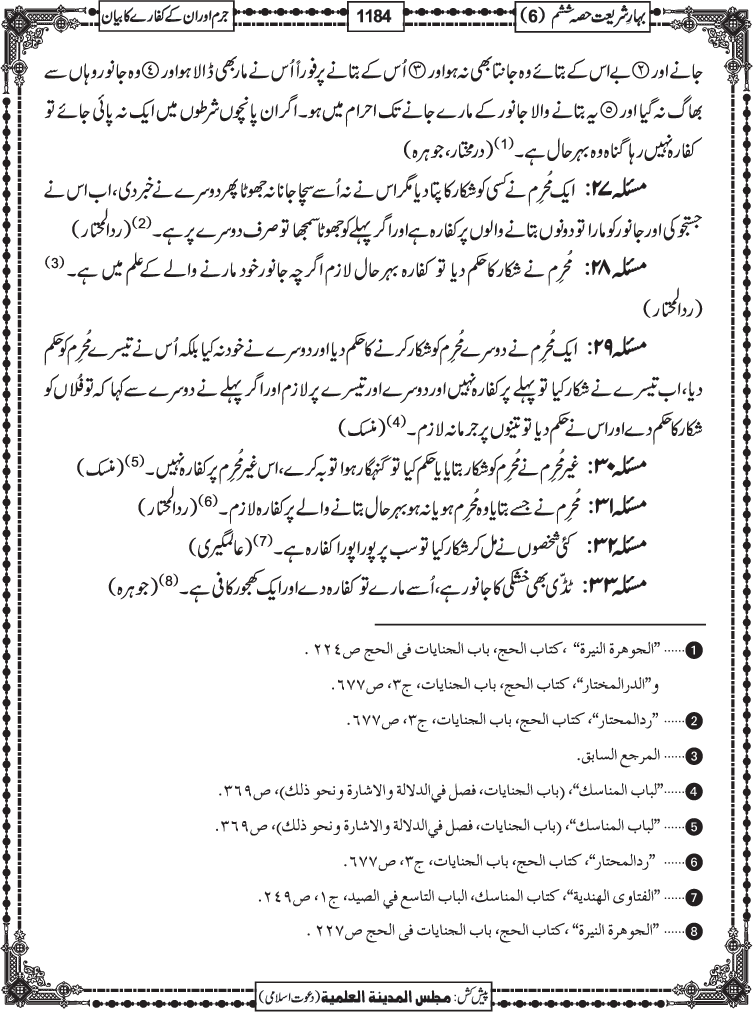 بہارِ شریعت حصہ ششم (6)
1184
جرم اور ان کے کفارے کا بیان
جانے اور ②بے اس کے بتائے وہ جانتا بھی نہ ہو اور ③اُس کے بتانے پر فوراً اُس نے مار بھی ڈالا ہو اور ④وہ جانور وہاں سے
بھاگ نہ گیا اور ⑤یہ بتانے والا جانور کے مارے جانے تک احرام میں ہو۔ اگر ان پانچوں شرطوں میں ایک نہ پائی جائے تو
کفارہ نہیں رہا گناہ وہ بہرحال ہے۔(1) (درمختار، جوہرہ)
مسئلہ ۲۷: ایک مُحرِم نے کسی کو شکار کا پتا دیا مگر اس نے نہ اُسے سچا جانا نہ جھوٹا پھر دوسرے نے خبر دی، اب اس نے
جستجو کی اور جانور کو مارا تو دونوں بتانے والوں پر کفارہ ہے اور اگر پہلے کو جھوٹا سمجھا تو صرف دوسرے پر ہے۔(2) (ردالمحتار)
مسئلہ ۲۸: مُحرِم نے شکار کا حکم دیا تو کفارہ بہرحال لازم اگرچہ جانور خود مارنے والے کے علم میں ہے۔(3)
(ردالمحتار)
مسئلہ ۲۹: ایک مُحرِم نے دوسرے مُحرِم کو شکار کرنے کا حکم دیا اور دوسرے نے خود نہ کیا بلکہ اُس نے تیسرے مُحرِم کو حکم
دیا، اب تیسرے نے شکار کیا تو پہلے پر کفارہ نہیں اور دوسرے اور تیسرے پر لازم اور اگر پہلے نے دوسرے سے کہا کہ تو فُلاں کو
شکار کا حکم دے اور اس نے حکم دیا تو تینوں پر جرمانہ لازم۔(4) (منسک)
مسئلہ ۳۰: غیر مُحرِم نے مُحرِم کو شکار بتایا یا حکم کیا تو گنہگار ہوا توبہ کرے، اس غیر مُحرِم پر کفارہ نہیں۔(5) (منسک)
مسئلہ ۳۱: مُحرِم نے جسے بتایا وہ مُحرِم ہو یا نہ ہو بہرحال بتانے والے پر کفارہ لازم۔(6) (ردالمحتار)
مسئلہ ۳۲: کئی شخصوں نے مل کر شکار کیا تو سب پر پورا پورا کفارہ ہے۔(7) (عالمگیری)
مسئلہ ۳۳: ٹڈّی بھی خشکی کا جانور ہے، اُسے مارے تو کفارہ دے اور ایک کھجور کافی ہے۔(8) (جوہرہ)
❶......”الجوهرة النيرة“ ،کتاب الحج، باب الجنايات فی الحج ص٢٢٤ .
و”الدرالمختار“، کتاب الحج، باب الجنايات، ج٣، ص٦٧٧.
❷...... ”ردالمحتار“، کتاب الحج، باب الجنايات، ج٣، ص٦٧٧.
❸...... المرجع السابق.
❹......”لباب المناسك“، (باب الجنايات، فصل في الدلالة والاشارة ونحو ذلك)، ص٣٦٩.
❺...... ”لباب المناسك“، (باب الجنايات، فصل في الدلالة والاشارة ونحو ذلك)، ص٣٦٩.
❻...... ”ردالمحتار“، کتاب الحج، باب الجنايات، ج٣، ص٦٧٧.
❼...... ”الفتاوى الهندية“، کتاب المناسك، الباب التاسع في الصيد، ج١، ص٢٤٩.
❽...... ”الجوهرة النيرة“ ،کتاب الحج، باب الجنايات فی الحج ص٢٢٧ .
پیش کش: مجلس المدينة العلمية (دعوت اسلامی)